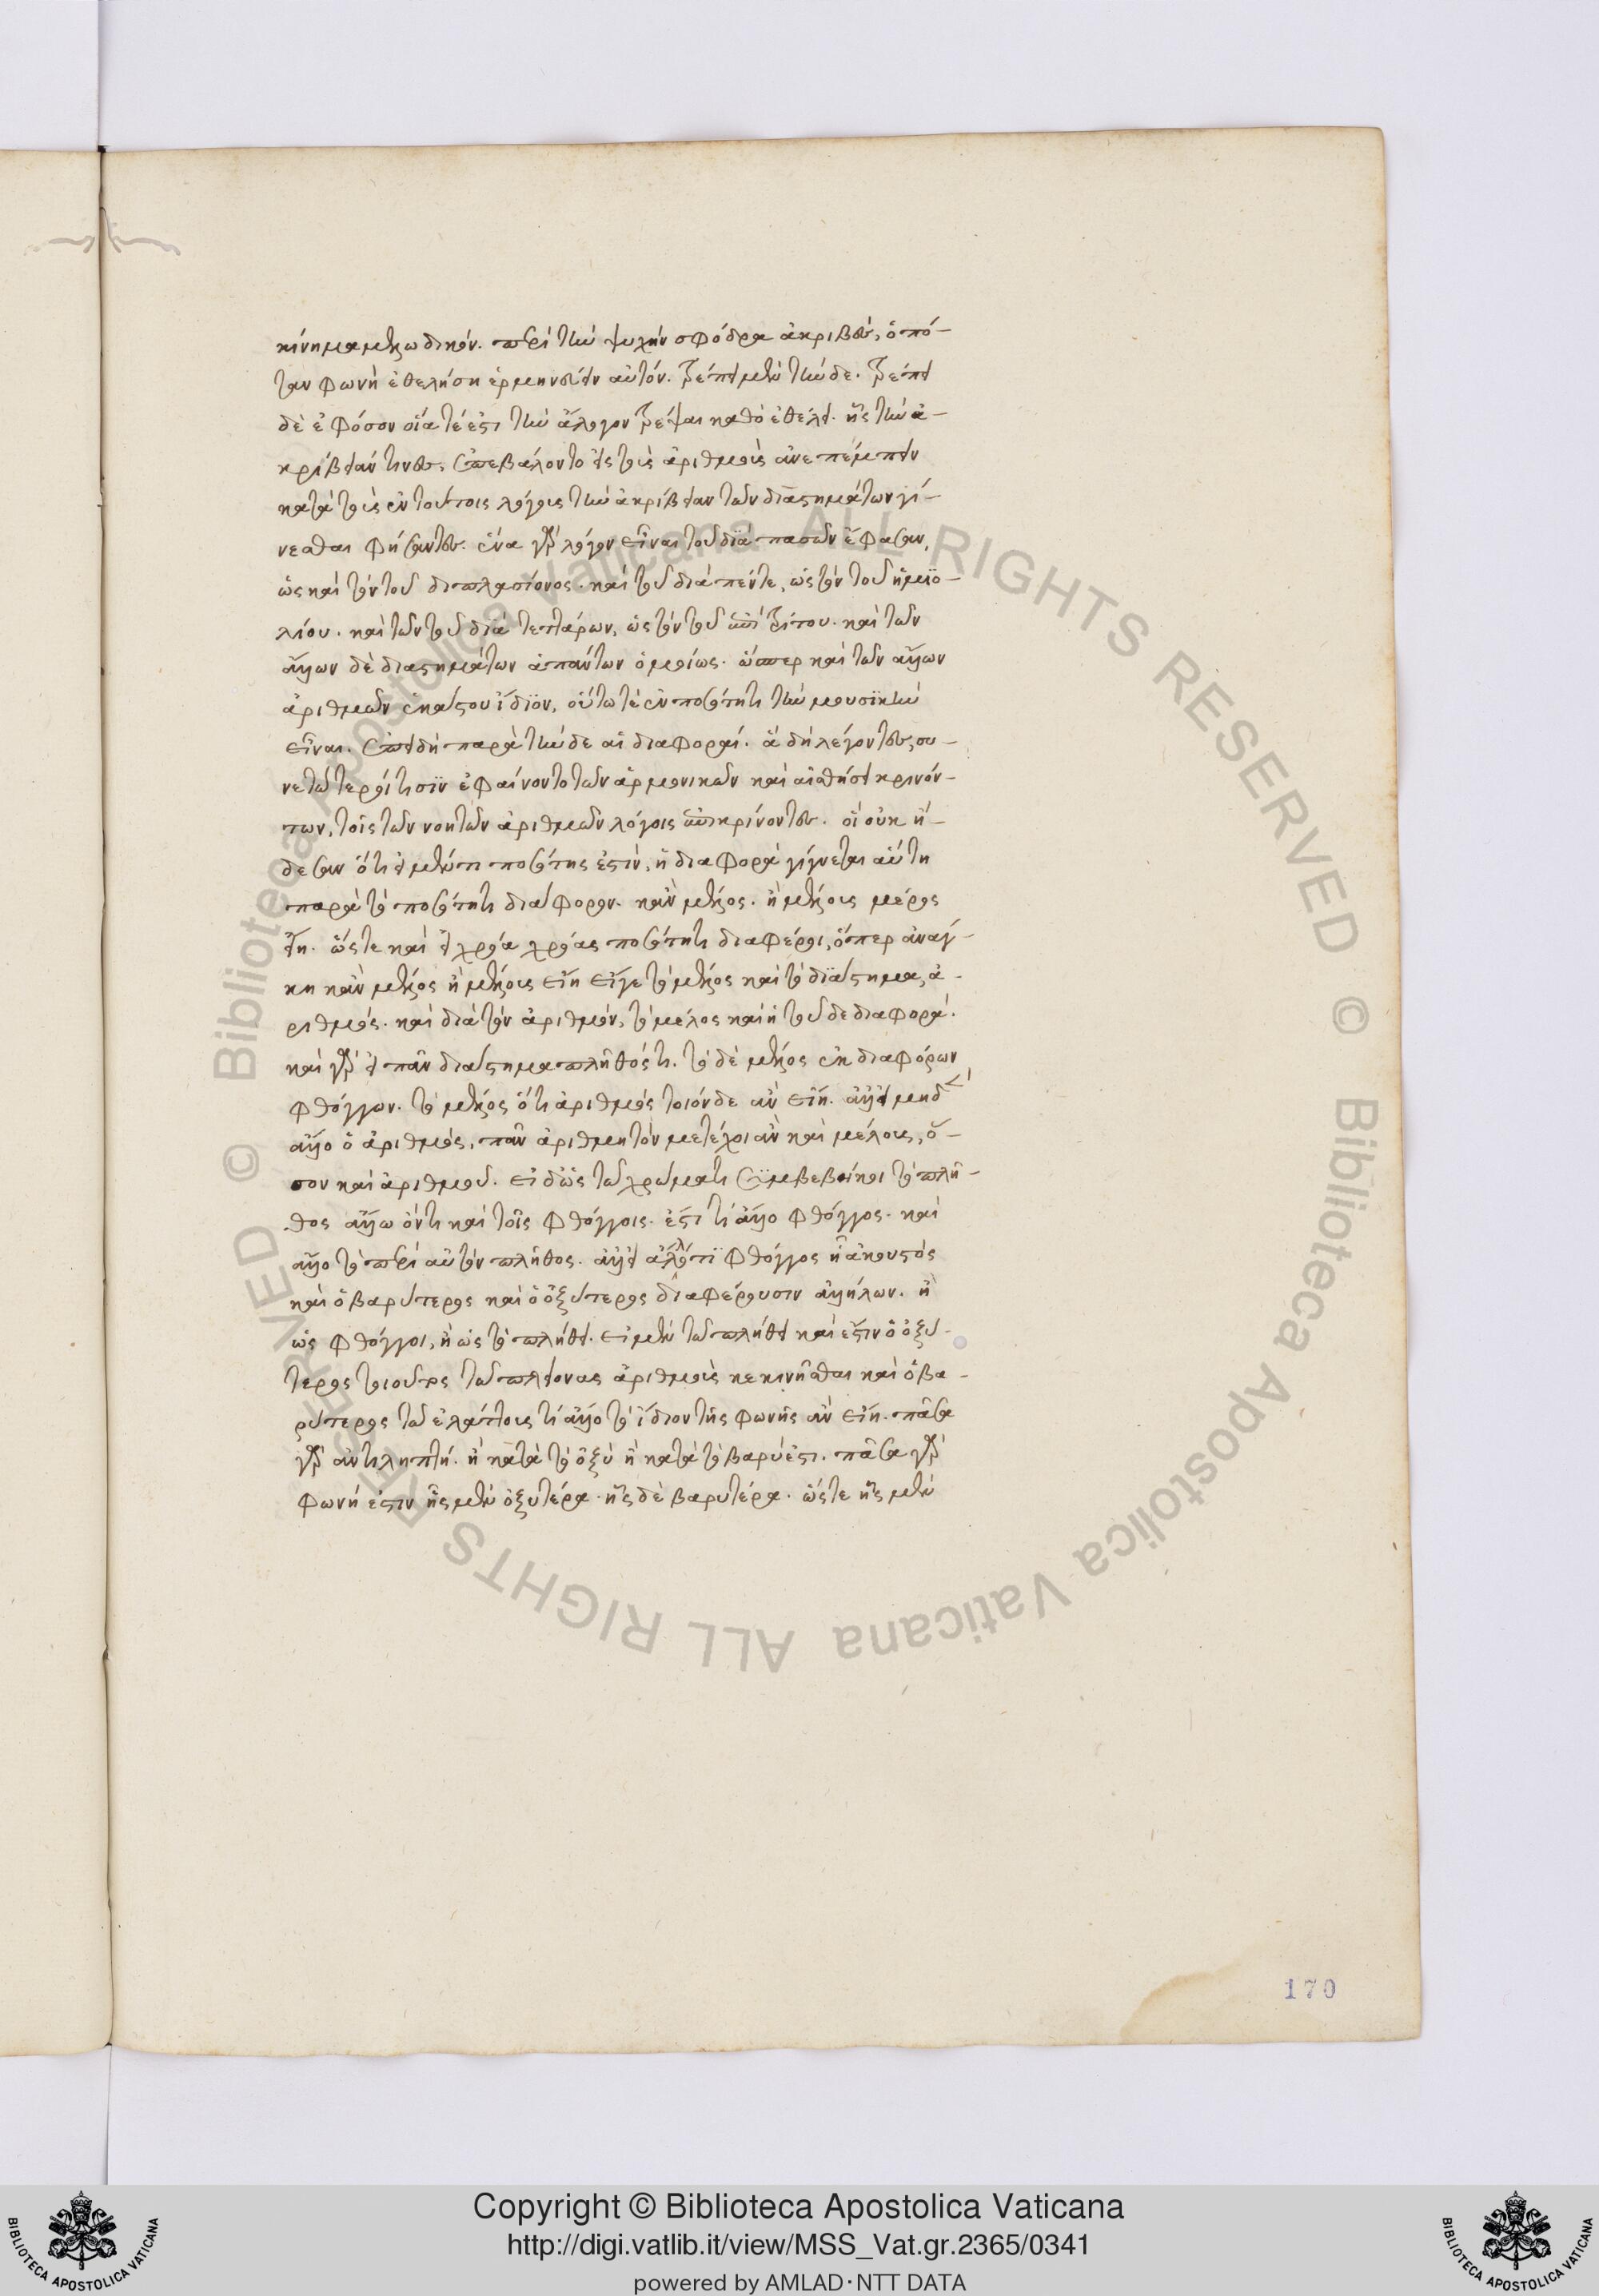 κίνημα μελῳδικόν. περὶ τὴν ψυχὴν σφόδρα ἀκριβὲς, ὁπό-
ταν φωνῇ ἐθελήσῃ ἑρμηνεύειν αὐτόν. τρέπει μὲν τήνδε. τρέπει
δὲ ἐφόσον οἵα τέ ἐστι τὴν ἄλογον τρέψαι καθὸ ἐθέλει. ἧς τὴν ἀ-
κρίβειάν τινες, ὑπεβάλοντο εἰς τοὺς ἀριθμοὺς ἀνεπέμπειν
κατὰ τοὺς ἐν τούτοις λόγους τὴν ἀκρίβειαν τῶν διαστημάτων γί-
νεσθαι φήσαντες. ἕνα γὰρ λόγον εἶναι τοῦ διὰ πασῶν ἔφασαν,
ὡς καὶ τὸν τοῦ διπλασίονος. καὶ τοῦ διὰ πέντε, ὡς τὸν τοῦ ἡμιο-
λίου. καὶ τῶν τοῦ διὰ τεττάρων, ὡς τὸν τοῦ ἐπὶ τρίτου. καὶ τῶν
ἄλλων δὲ διαστημάτων ἁπάντων ὁμοίως. ὥσπερ καὶ τῶν ἄλλων
ἀριθμῶν ἑκάστου ἴδιον, οὕτω τὲ ἐν ποσότητι τὴν μουσικὴν
εἶναι. ἐπειδὴ παρὰ τήνδε αἱ διαφοραί. ἃ δὴ λέγοντες, συ-
νετώτεροί τισιν ἐφαίνοντο τῶν ἁρμονικῶν καὶ αἰσθήσει κρινόν-
των, τοῖς τῶν νοητῶν ἀριθμῶν λόγοις ἐπικρίνοντες. οἳ οὐκ ᾔ-
δεσαν ὅτι εἰ μέν τι ποσότης ἐστὶν, ἡ διαφορὰ γίγνεται αὕτη
παρὰ τὸ ποσότητι διάφορον. κἂν μέλος. ἢ μέλους μέρος
εἴη. ὥστε καὶ εἰ χρόα χρόας ποσότητι διαφέροι, ὅπερ ἀνάγ-
κη κἂν μέλος ἢ μέλους εἴη εἴγε τὸ μέλος καὶ τὸ διάστημα, ἀ-
ριθμός. καὶ διὰ τὸν ἀριθμόν, τὸ μέλος καὶ ἡ τοῦδε διαφορά.
καὶ γὰρ εἰ πᾶν διάστημα πλῆθός τι. τὸ δὲ μέλος ἐκ διαφόρων
φθόγγων. τὸ μέλος ὅτι ἀριθμός τοιόνδε ἂν εἴη. ἀλλ' εἰ μηδὲν
ἄλλο ὁ ἀριθμός, πᾶν ἀριθμητὸν μετέχοι ἂν καὶ μέλους, ὅ-
σον καὶ ἀριθμοῦ. εἰ δ' ὡς τῷ χρώματι συμβεβήκοι τὸ πλῆ-
θος ἄλλῳ ὄντι καὶ τοῖς φθόγγοις. ἐστί τι ἄλλο φθόγγος. καὶ
ἄλλο τὸ περὶ αὐτὸν πλῆθος. ἀλλ' εἰ ἄλλό τι φθόγγος ἢ ἀκουστὸς
καὶ ὁ βαρύτερος καὶ ὁ ὀξύτερος διαφέρουσιν ἀλλήλων. ἢ
ὡς φθόγγοι, ἢ ὡς τὸ πλήθει. εἰ μὲν τῷ πλήθει καὶ ἔστιν ὁ ὀξύ-
τερος τοιοῦτος τῷ πλείονας ἀριθμοὺς κεκινῆσθαι καὶ ὁ βα-
ρύτερος τῷ ἐλάττους τί ἄλλο τὸ ἴδιον τῆς φωνῆς ἂν εἴη. πᾶσα
γὰρ ἀντιληπτή. ἢ κατὰ τὸ ὀξὺ ἢ κατὰ τὸ βαρύ ἐστι. πᾶσα γὰρ
φωνή ἐστιν ἧς μὲν ὀξυτέρα. ἧς δὲ βαρυτέρα. ὥστε ἧς μὲν
170
© Biblioteca Apostolica Vaticana ALL RIGHTS RESERVED © Biblioteca Apostolica Vaticana ALL RIGHTS RESERVED
Copyright © Biblioteca Apostolica Vaticana
http://digi.vatlib.it/view/MSS_Vat.gr.2365/0341
powered by AMLAD·NTT DATA
BIBLIOTECA APOSTOLICA VATICANA
BIBLIOTECA APOSTOLICA VATICANA